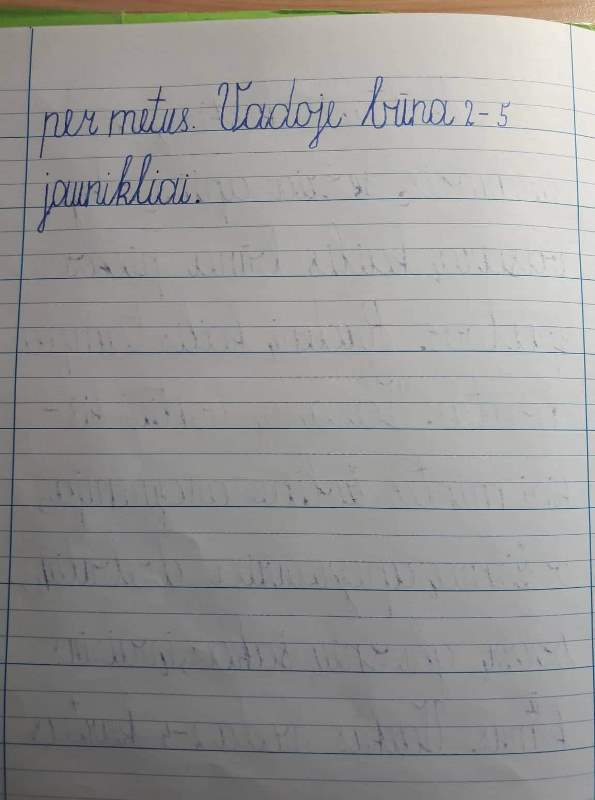 per metus. Vadoje būna 2-5
jaunikliai.